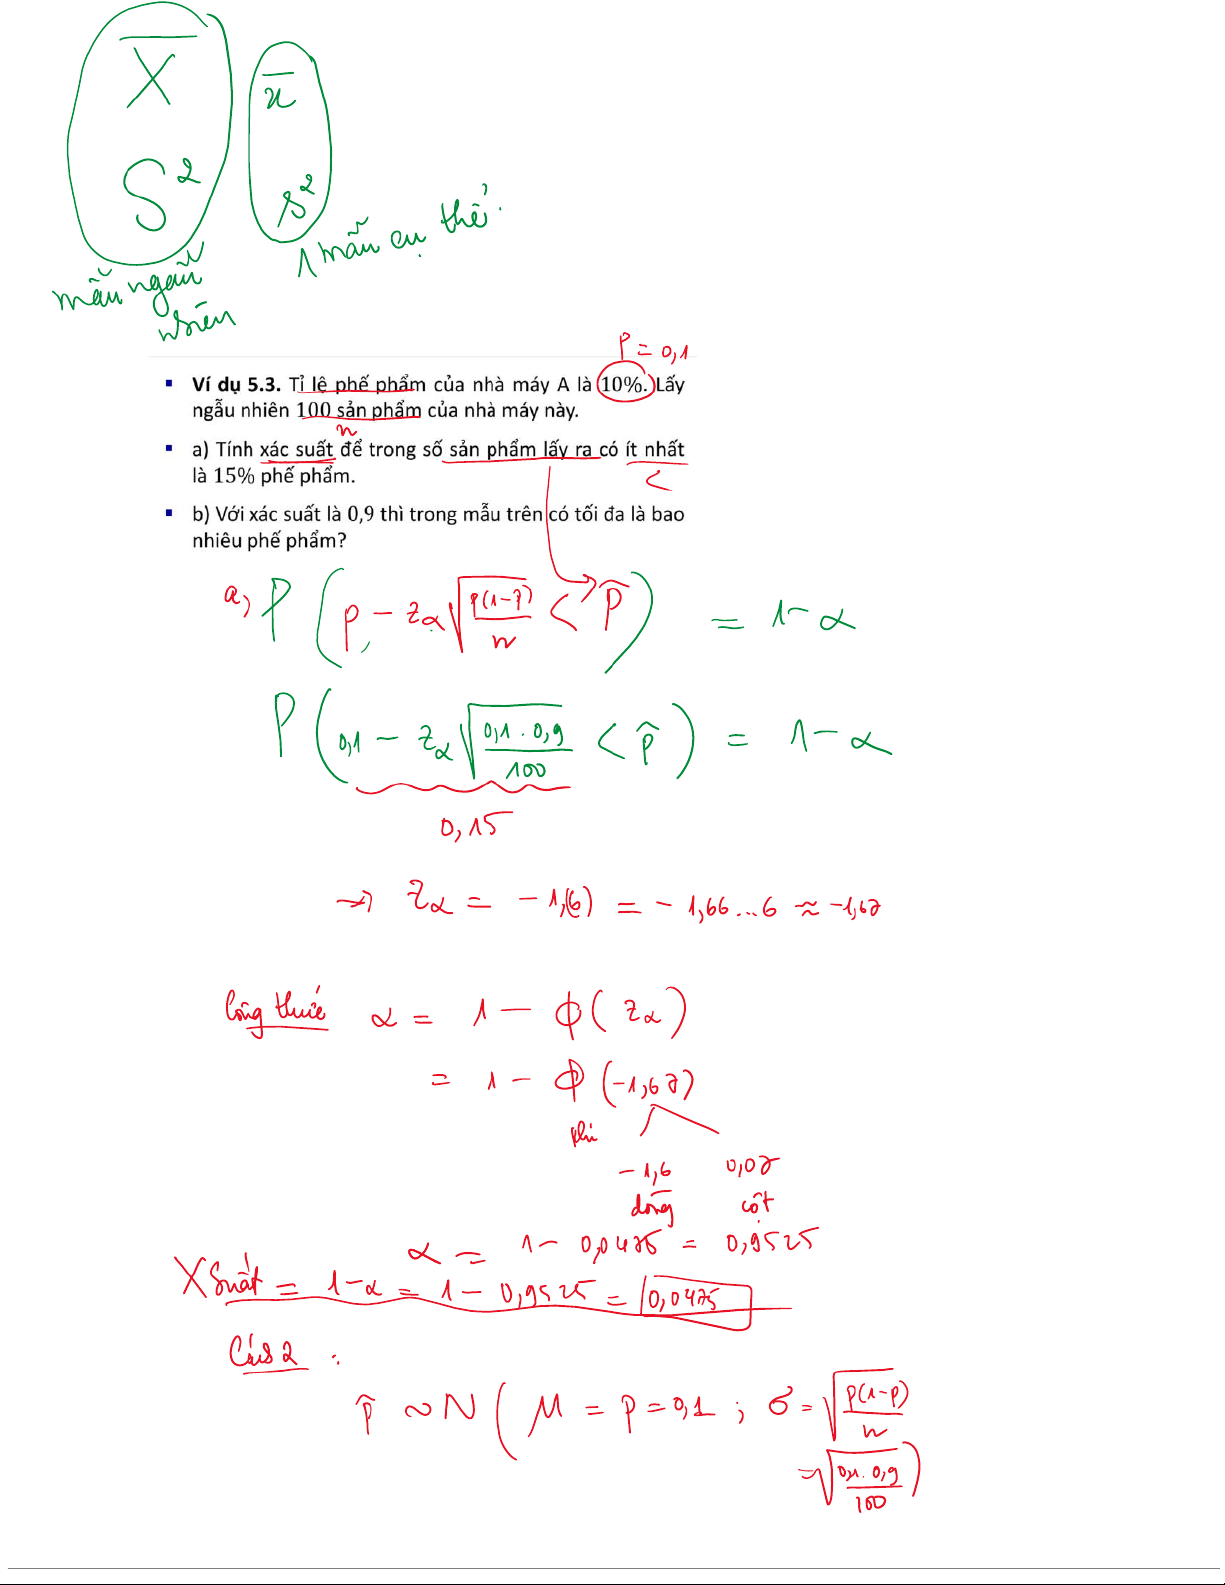 X̄
x̄
S²
s²
mẫu ngẫu
nhiên
1 mẫu cụ thể
p = 0,1
▪ Ví dụ 5.3. Tỉ lệ phế phẩm của nhà máy A là 10%. Lấy
ngẫu nhiên 100 sản phẩm của nhà máy này.
n
▪ a) Tính xác suất để trong số sản phẩm lấy ra có ít nhất
<
là 15% phế phẩm.
▪ b) Với xác suất là 0,9 thì trong mẫu trên có tối đa là bao
nhiêu phế phẩm?
a) P(p - z_α √(p(1-p)/n) < p̂) = 1 - α
P(0,1 - z_α √(0,1 . 0,9/100) < p̂) = 1 - α
0,15
→ z_α = -1,(6) = -1,66...6 ≈ -1,67
Công thức α = 1 - ϕ(z_α)
= 1 - ϕ(-1,67)
phi
-1,6 0,07
dòng cột
α = 1 - 0,0475 = 0,9525
X Suất = 1-α = 1 - 0,9525 = 0,0475
Cách 2 :
p̂ ~ N(μ = p = 0,1 ; σ = √(p(1-p)/n)
= √(0,1 . 0,9/100))